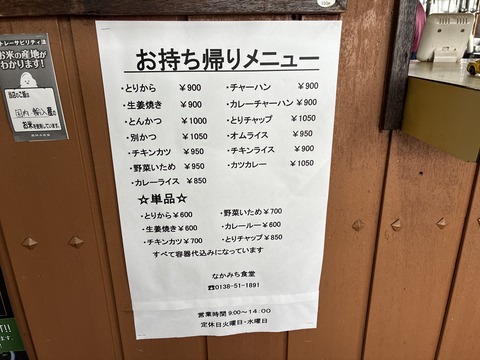 お持ち帰りメニュー
・とりから ￥900
・生姜焼き ￥900
・とんかつ ￥1000
・別かつ ￥1050
・チキンカツ ￥950
・野菜いため ￥950
・カレーライス ￥850
・チャーハン ￥900
・カレーチャーハン ￥900
・とりチャップ ￥1050
・オムライス ￥950
・チキンライス ￥900
・カツカレー ￥1050
☆単品☆
・とりから￥600
・生姜焼き￥600
・チキンカツ￥700
・野菜いため￥700
・カレールー￥600
・とりチャップ￥850
すべて容器代込みになっています
なかみち食堂
☎0138-51-1891
営業時間 9:00～14:00
定休日火曜日・水曜日
トレーサビリティ法
お米の産地が
わかります!
国内
産の
お米を使用しています。